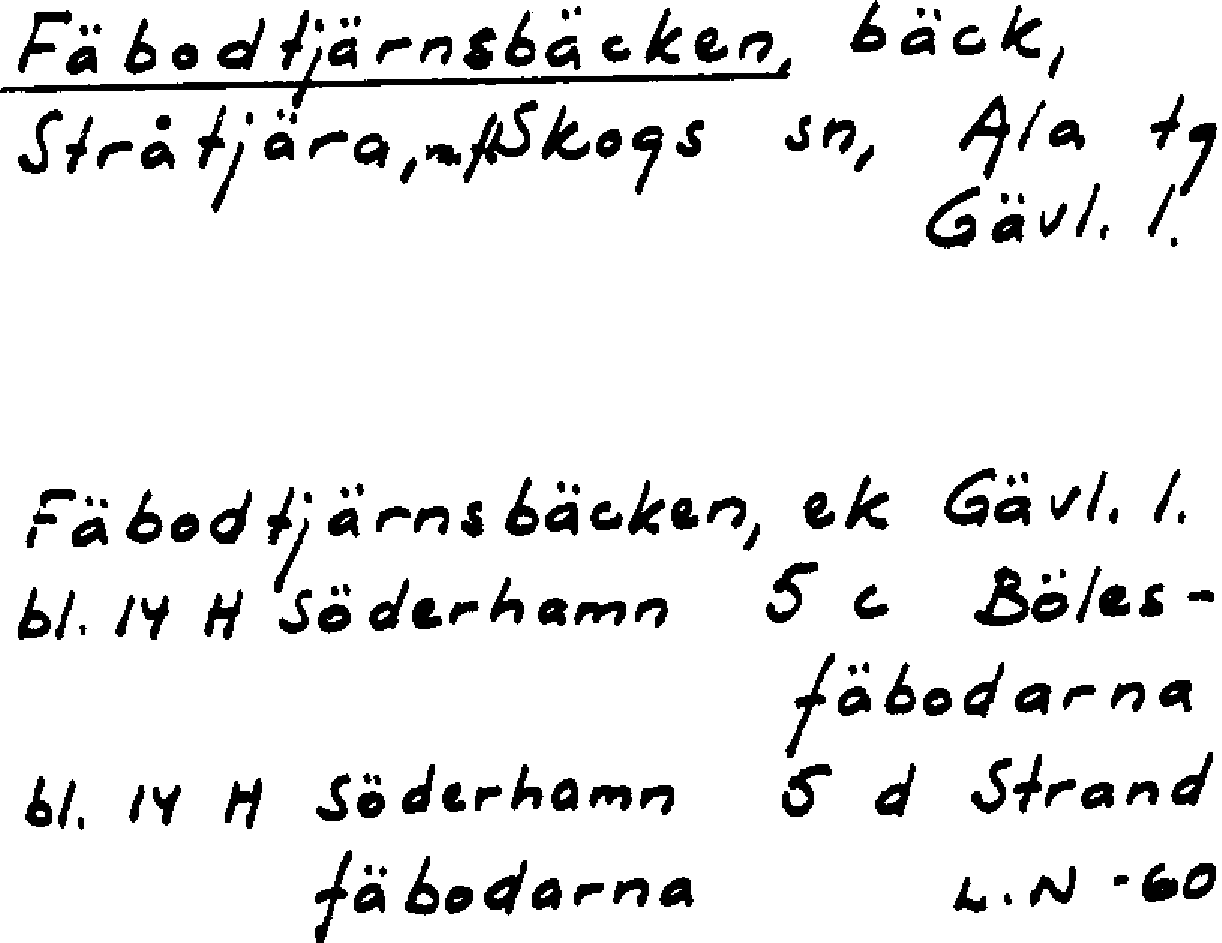 Fäbodtjärnsbäcken, bäck,
Stråtjära, m fl Skogs sn, Ala tg
Gävl. l.
Fäbodtjärnsbäcken, ek Gävl. l.
bl. 14 H Söderhamn 5 c Böles-
fäbodarna
bl. 14 H Söderhamn 5 d Strand
fäbodarna L.N -60